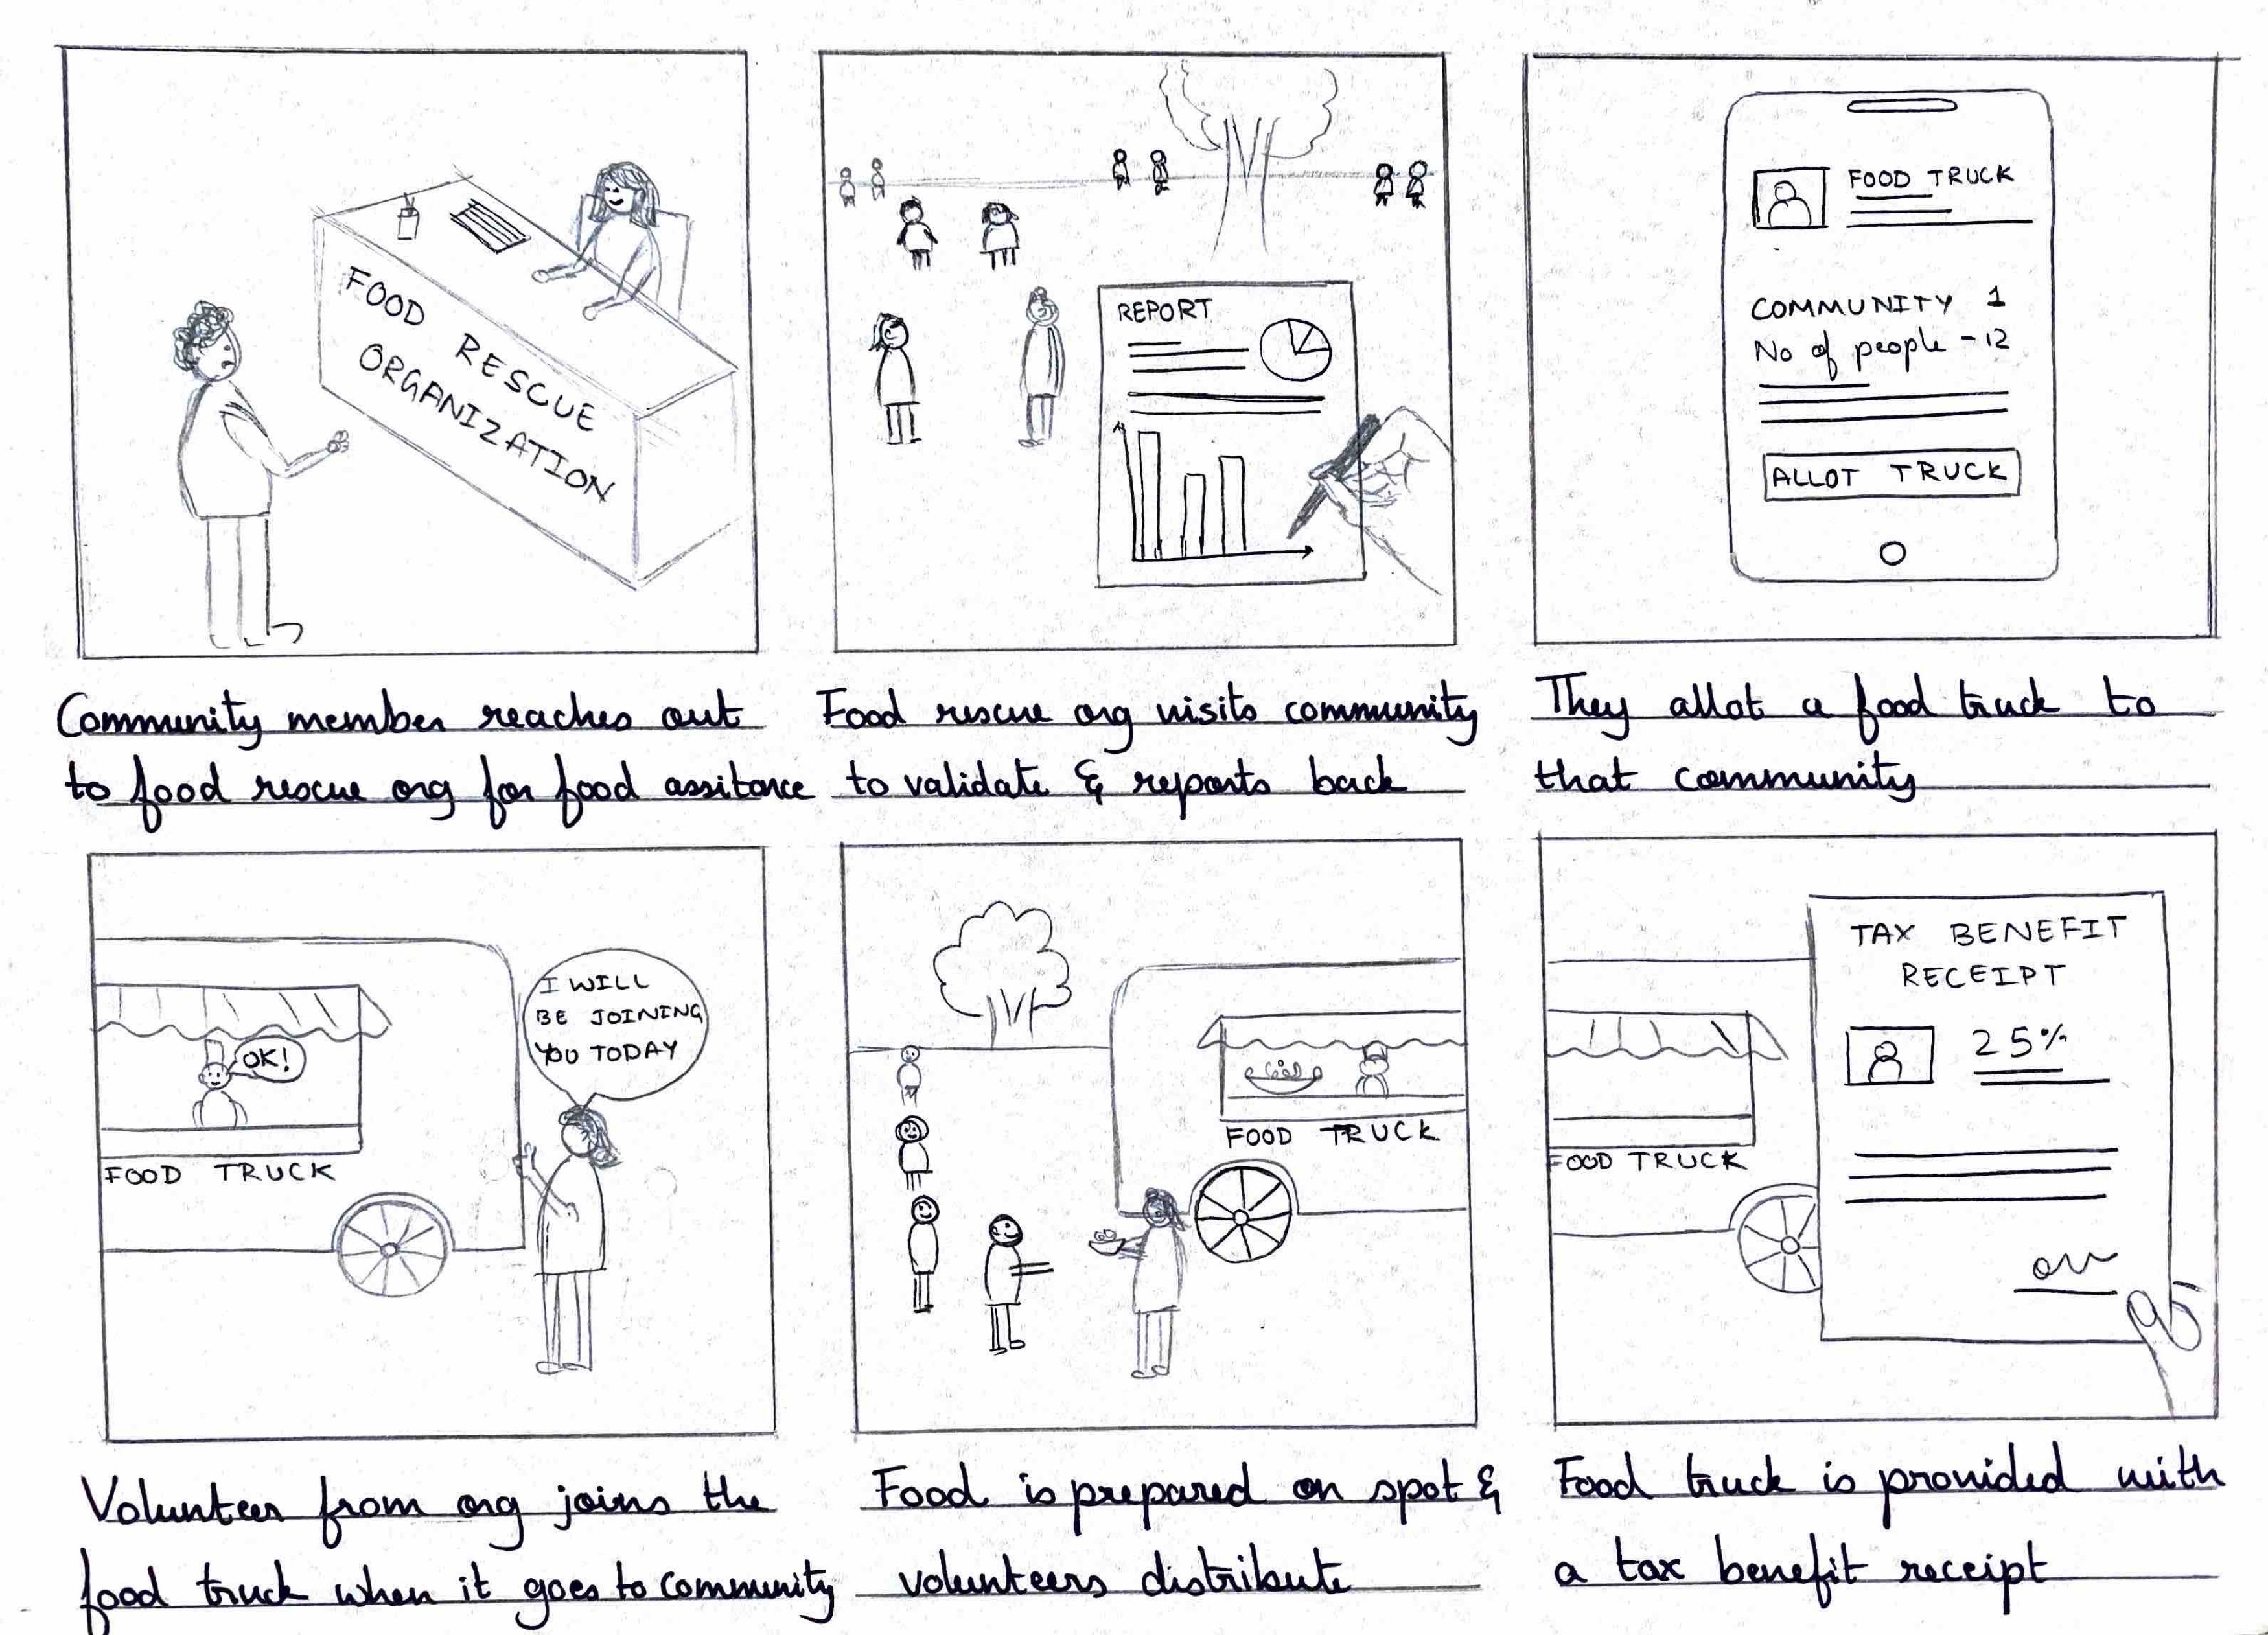 FOOD RESCUE
ORGANIZATION
Community member reaches out
to food rescue org for food assitance
REPORT
Food rescue org visits community
to validate & reports back
FOOD TRUCK
COMMUNITY 1
No of people - 12
ALLOT TRUCK
They allot a food truck to
that community
I WILL
BE JOINING
YOU TODAY
OK!
FOOD TRUCK
Volunteer from org joins the
food truck when it goes to community
FOOD TRUCK
Food is prepared on spot &
volunteers distribute
TAX BENEFIT
RECEIPT
25%
FOOD TRUCK
Food truck is provided with
a tax benefit receipt